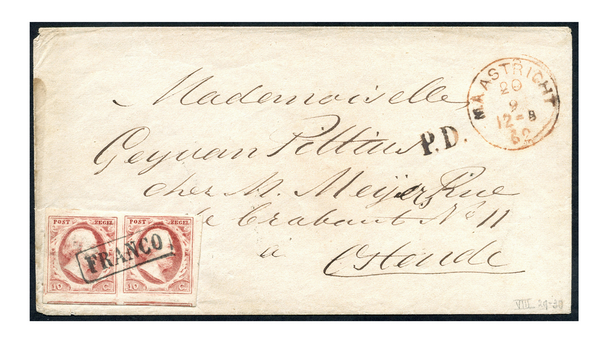 MAASTRICHT
20
9
12-B
62
Mademoiselle
Geyvan Pittius
P.D.
chez M. Meijer, Rue
de Brabant No 11
à
Ostende
POST ZEGEL POST ZEGEL
FRANCO
10 C 10 C
VIII 29-30